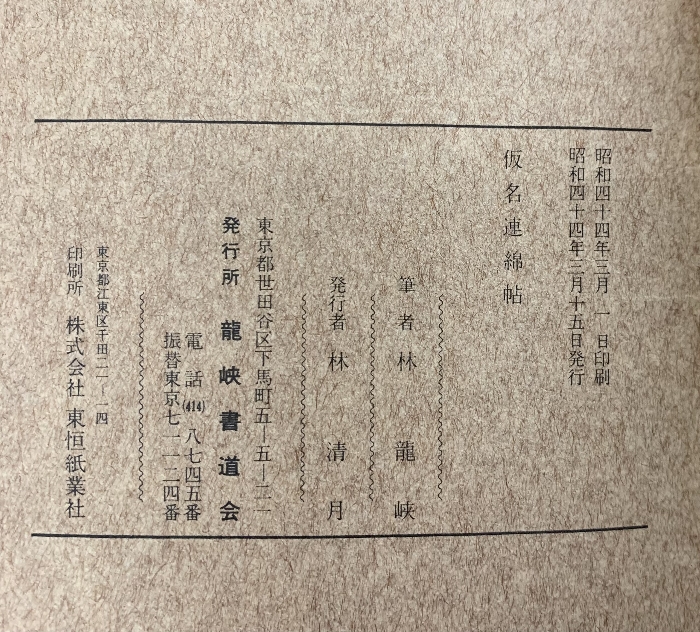 昭和四十四年三月一日印刷
昭和四十四年三月十五日発行
仮名連綿帖
筆者 林 龍峡
発行者 林 清月
東京都世田谷区下馬町五―五―二一
発行所 龍峡書道会
電話(414)八七四五番
振替東京七一一二四番
東京都江東区千田二一―一四
印刷所 株式会社 東恒紙業社